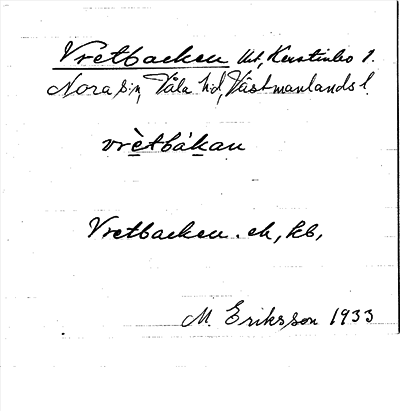 Vretbacken lht, Kerstinbo 1.
Nora sn, Våla hd, Västmanlands l.
vrètbákan
Vretbacken. ek, kb,
M. Eriksson 1933